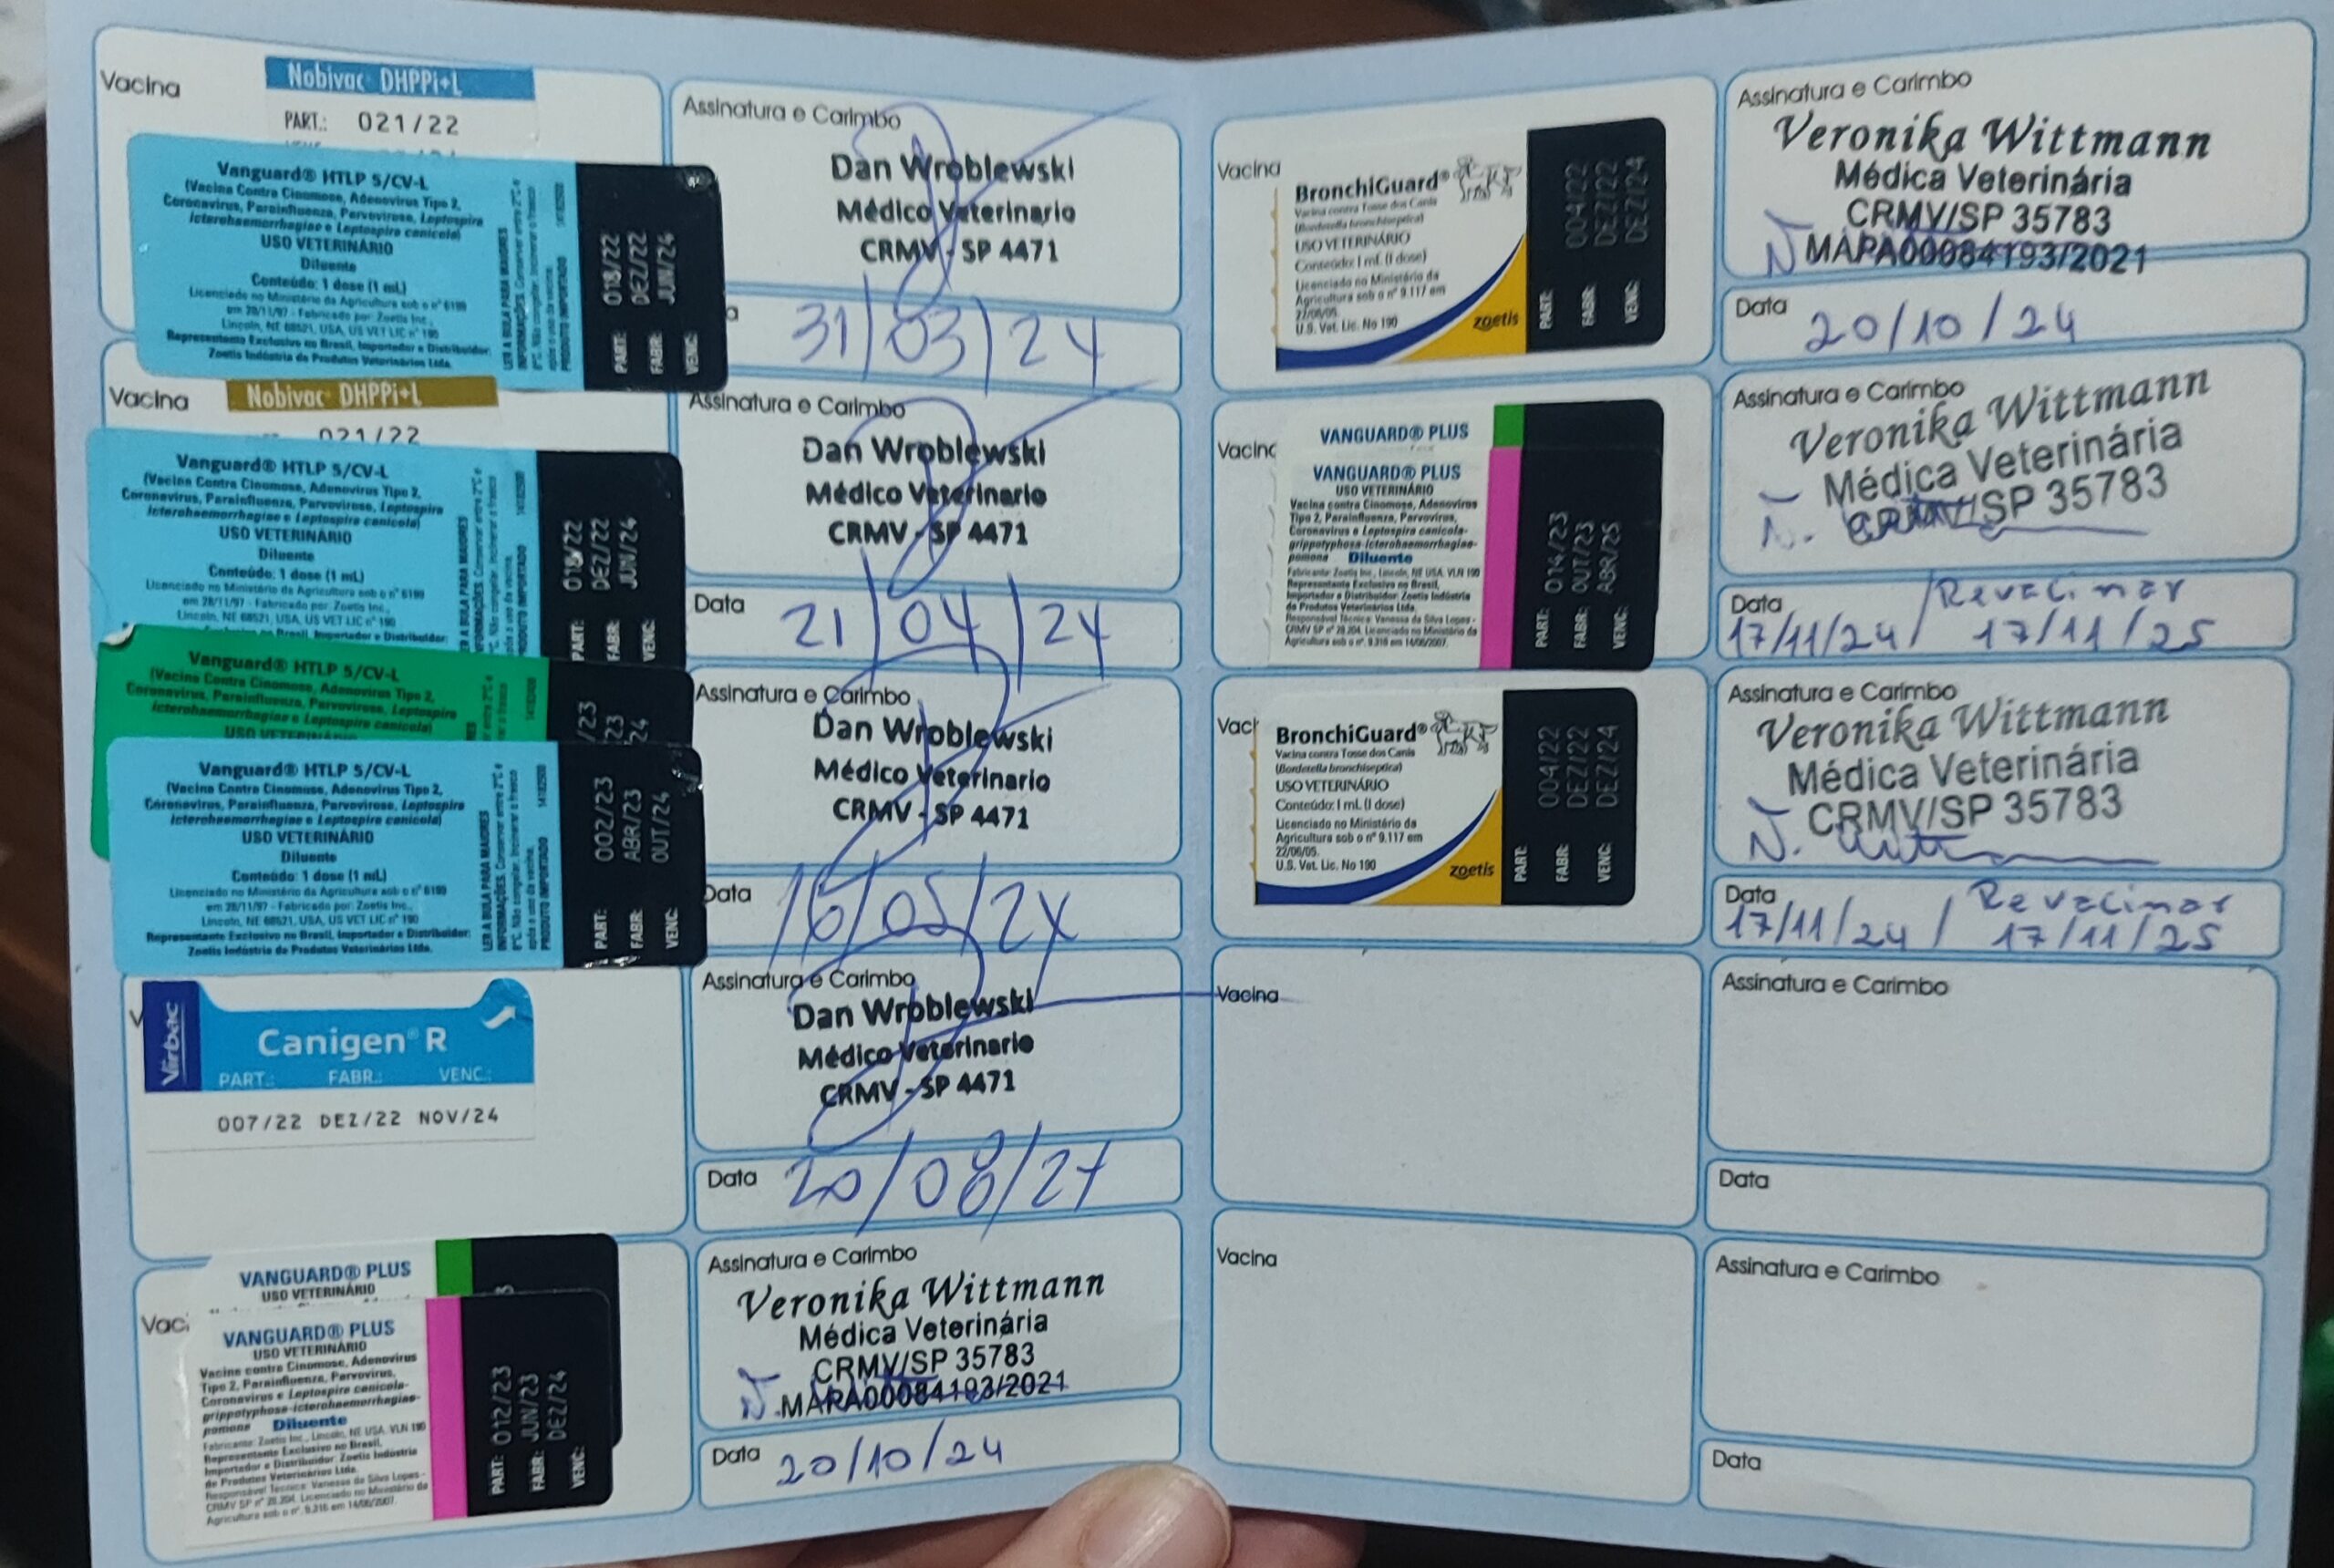 Vacina
Nobivac DHPPi+L
PART.: 021/22
Vanguard® HTLP 5/CV-L
(Vacina Contra Cinomose, Adenovirus Tipo 2,
Coronavirus, Parainfluenza, Parvovirose, Leptospira
icterohaemorrhagiae e Leptospira canicola)
USO VETERINÁRIO
Diluente
Conteúdo: 1 dose (1 mL)
Licenciado no Ministério da Agricultura sob o nº 6199
em 28/11/97 - Fabricado por: Zoetis Inc.,
Lincoln, NE 68521, USA, US VET LIC nº 190
Representante Exclusivo no Brasil, Importador e Distribuidor:
Zoetis Indústria de Produtos Veterinários Ltda.
LER A BULA PARA MAIORES
INFORMAÇÕES. Conservar entre 2°C e
8°C. Não congelar. Incinerar o frasco
após o uso da vacina.
PRODUTO IMPORTADO
PART: 018/22
FABR: DEZ/22
VENC: JUN/24
Assinatura e Carimbo
Dan Wroblewski
Médico Veterinario
CRMV - SP 4471
31/03/24
Vacina
Nobivac DHPPi+L
021/22
Vanguard® HTLP 5/CV-L
(Vacina Contra Cinomose, Adenovirus Tipo 2,
Coronavirus, Parainfluenza, Parvovirose, Leptospira
icterohaemorrhagiae e Leptospira canicola)
USO VETERINÁRIO
Diluente
Conteúdo: 1 dose (1 mL)
Licenciado no Ministério da Agricultura sob o nº 6199
em 28/11/97 - Fabricado por: Zoetis Inc.,
Lincoln, NE 68521, USA, US VET LIC nº 190
PART: 018/22
FABR: DEZ/22
VENC: JUN/24
Assinatura e Carimbo
Dan Wroblewski
Médico Veterinario
CRMV - SP 4471
Data 21/04/24
Vanguard® HTLP 5/CV-L
(Vacina Contra Cinomose, Adenovirus Tipo 2,
Coronavirus, Parainfluenza, Parvovirose, Leptospira
icterohaemorrhagiae e Leptospira canicola)
USO VETERINÁRIO
Vanguard® HTLP 5/CV-L
(Vacina Contra Cinomose, Adenovirus Tipo 2,
Coronavirus, Parainfluenza, Parvovirose, Leptospira
icterohaemorrhagiae e Leptospira canicola)
USO VETERINÁRIO
Diluente
Conteúdo: 1 dose (1 mL)
Licenciado no Ministério da Agricultura sob o nº 6199
em 28/11/97 - Fabricado por: Zoetis Inc.,
Lincoln, NE 68521, USA, US VET LIC nº 190
Representante Exclusivo no Brasil, Importador e Distribuidor:
Zoetis Indústria de Produtos Veterinários Ltda.
LER A BULA PARA MAIORES
INFORMAÇÕES. Conservar entre 2°C e
8°C. Não congelar. Incinerar o frasco
após o uso da vacina.
PRODUTO IMPORTADO
PART: 002/23
FABR: ABR/23
VENC: OUT/24
Assinatura e Carimbo
Dan Wroblewski
Médico Veterinario
CRMV - SP 4471
Data 16/05/24
Virbac
Canigen® R
PART.: FABR.: VENC.:
007/22 DEZ/22 NOV/24
Assinatura e Carimbo
Dan Wroblewski
Médico Veterinario
CRMV - SP 4471
Data 20/08/24
VANGUARD® PLUS
USO VETERINÁRIO
VANGUARD® PLUS
USO VETERINÁRIO
Vacina contra Cinomose, Adenovirus
Tipo 2, Parainfluenza, Parvovirus,
Coronavirus e Leptospira canicola-
grippotyphosa-icterohaemorrhagiae-
pomona Diluente
Fabricante: Zoetis Inc., Lincoln, NE USA. VLN 190
Representante Exclusivo no Brasil,
Importador e Distribuidor: Zoetis Indústria
de Produtos Veterinários Ltda.
Responsável Técnico: Vanessa da Silva Lopes -
CRMV SP nº 28.204. Licenciado no Ministério da
Agricultura sob o nº. 9.316 em 14/06/2007.
PART: 012/23
FABR: JUN/23
VENC: DEZ/24
Assinatura e Carimbo
Veronika Wittmann
Médica Veterinária
CRMV/SP 35783
MAPA00084193/2021
Data 20/10/24
Vacina
BronchiGuard®
Vacina contra Tosse dos Canis
(Bordetella bronchiseptica)
USO VETERINÁRIO
Conteúdo: 1 mL (1 dose)
Licenciado no Ministério da
Agricultura sob o nº 9.117 em
22/06/05.
U.S. Vet. Lic. No 190
zoetis
PART: 004/22
FABR: DEZ/22
VENC: DEZ/24
Assinatura e Carimbo
Veronika Wittmann
Médica Veterinária
CRMV/SP 35783
MAPA00084193/2021
Data 20/10/24
VANGUARD® PLUS
VANGUARD® PLUS
USO VETERINÁRIO
Vacina contra Cinomose, Adenovirus
Tipo 2, Parainfluenza, Parvovirus,
Coronavirus e Leptospira canicola-
grippotyphosa-icterohaemorrhagiae-
pomona Diluente
Fabricante: Zoetis Inc., Lincoln, NE USA. VLN 190
Representante Exclusivo no Brasil,
Importador e Distribuidor: Zoetis Indústria
de Produtos Veterinários Ltda.
Responsável Técnico: Vanessa da Silva Lopes -
CRMV SP nº 28.204. Licenciado no Ministério da
Agricultura sob o nº. 9.316 em 14/06/2007.
PART: 014/23
FABR: OUT/23
VENC: ABR/25
Assinatura e Carimbo
Veronika Wittmann
Médica Veterinária
CRMV/SP 35783
Data
17/11/24 / Revacinar
17/11/25
BronchiGuard®
Vacina contra Tosse dos Canis
(Bordetella bronchiseptica)
USO VETERINÁRIO
Conteúdo: 1 mL (1 dose)
Licenciado no Ministério da
Agricultura sob o nº 9.117 em
22/06/05.
U.S. Vet. Lic. No 190
zoetis
PART: 004/22
FABR: DEZ/22
VENC: DEZ/24
Assinatura e Carimbo
Veronika Wittmann
Médica Veterinária
CRMV/SP 35783
Data
17/11/24 / Revacinar
17/11/25
Vacina
Assinatura e Carimbo
Data
Vacina
Assinatura e Carimbo
Data